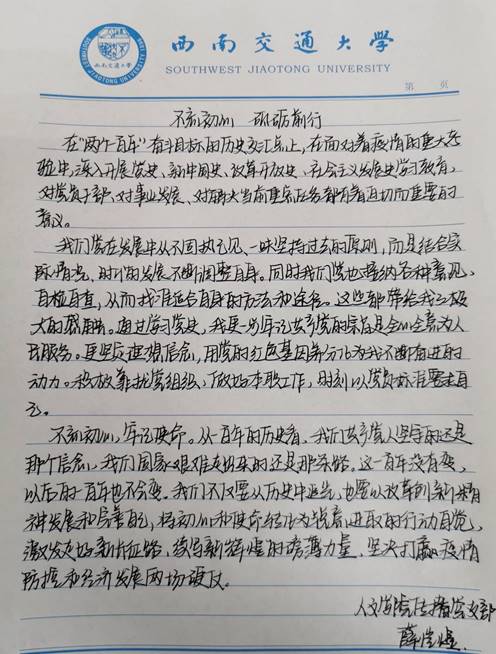 西南交通大学
SOUTHWEST JIAOTONG UNIVERSITY
第 页
不忘初心 砥砺前行
在“两个百年”奋斗目标的历史交汇点上,在面对着疫情的重大考
验中,深入开展党史、新中国史、改革开放史、社会主义发展史学习教育,
对党员干部、对事业发展、对解决当前重点任务都有着直切而重要的
意义。
我们党在发展中从不固执己见、一味坚持过去的原则,而是结合实
际情况、时代的发展不断调整自身。同时我们党也接纳各种意见,
自检自查,从而找准适合自身的方法和途径。这些都带给我了极
大的感触。通过学习党史,我更加牢记共产党的宗旨是全心全意为人
民服务。更坚定理想信念,用党的红色基因养分化为我不断奋进的
动力。积极靠拢党组织,做好本职工作,时刻以党员标准要求自
己。
不忘初心,牢记使命。从一百年的历史看,我们共产党人坚守的还是
那个信念,我们国家艰难走出来的还是那条路,这一百年没有变,
以后的一百年也不会变。我们不仅要从历史中追先,也要以改革创新精
神发展和完善自己,将初心和使命转化为锐意进取的行动自觉,
激发走好新征路,续写新辉煌的磅礴力量,坚决打赢疫情
防控和经济发展两场硬仗。
人文学院传播学支部